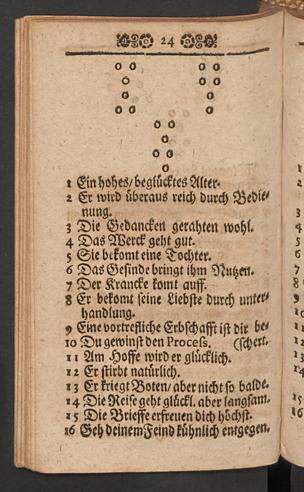 24
1 Ein hohes/ beglücktes Alter.
2 Er wird überaus reich durch Bedie-
nung.
3 Die Gedancken gerahten wohl.
4 Das Werck geht gut.
5 Sie bekomt eine Tochter.
6 Das Gesinde bringt ihm Nutzen.
7 Der Krancke komt auff.
8 Er bekomt seine Liebste durch unter-
handlung.
9 Eine vortrefliche Erbschafft ist dir be-
10 Du gewinst den Process. (schert.
11 Am Hoffe wird er glücklich.
12 Er stirbt natürlich.
13 Er kriegt Boten/ aber nicht so balde.
14 Die Reise geht glückl. aber langsam.
15 Die Brieffe erfreuen dich höchst.
16 Geh deinem Feind kühnlich entgegen.